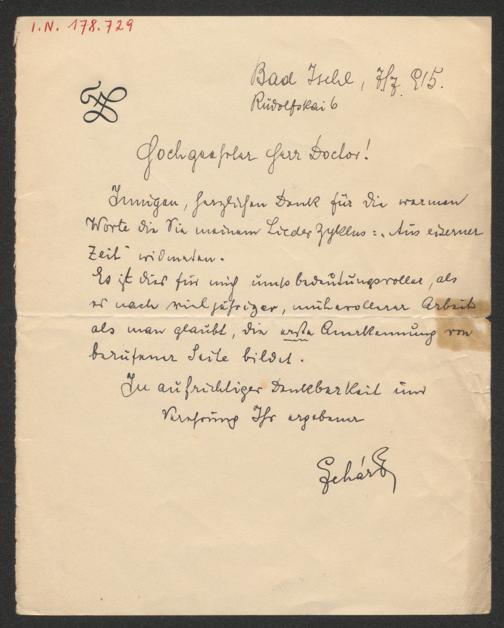 I.N. 178.729
Bad Ischl, 7/7. 915.
Rudolfskai 6
Hochgeehrter Herr Doctor!
Innigen, herzlichen Dank für die warmen
Worte die Sie meinem Lieder Zyklus: „Aus eiserner
Zeit" widmeten.
Es ist dies für mich umso bedeutungsvoller, als
es nach vieljähriger, mühevollerer Arbeit
als man glaubt, die erste Anerkennung von
berufener Seite bildet.
In aufrichtiger Dankbarkeit und
Verehrung Ihr ergebener
Lehár